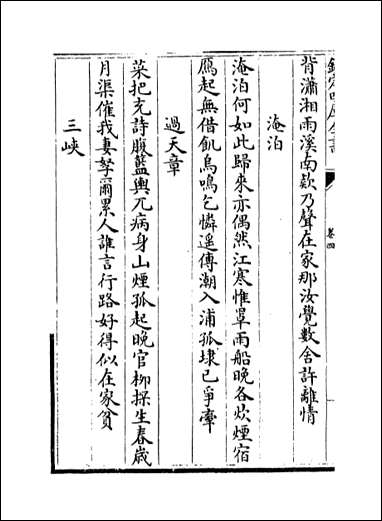 欽定四庫全書
卷四
背瀟湘雨溪南欸乃聲在家那汝覺數舍許離情
淹泊
淹泊何如此歸來亦偶然江寒惟罩雨船晚各炊煙宿
鴈起無借飢烏鳴乞憐遥傳潮入浦孤埭已爭牽
過天章
菜把充詩腹藍輿兀病身山煙孤起晚官柳探生春歳
月渠催我妻孥爾累人誰言行路好得似在家貧
三峽